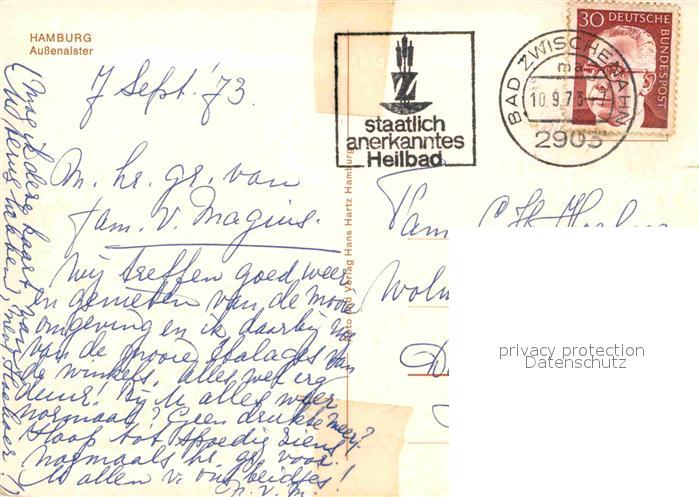 HAMBURG
Außenalster
7 Sept. '73.
M. hr. gr. van
fam. v. Magius.
Wij treffen goed weer
en genieten van de mooie
omgeving en ik daarbij nog
van de mooie etalages van
de winkels, alles wel erg
duur! Bij U alles weer
normaal? Geen drukte meer?
Hoop tot spoedig ziens
nogmaals hr. gr. voor
U allen v. ons beidjes!
(Mag ik deze kaart van
U terug hebben,
Foto und Verlag Hans Hartz Hamburg
Z
staatlich
anerkanntes
Heilbad
BAD ZWISCHENAHN
10.9.73
2903
30 DEUTSCHE
BUNDESPOST
Fam.
privacy protection
Datenschutz